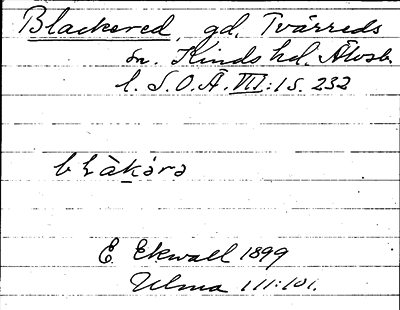 Blackered, gd, Tvärreds
sn. Kinds hd. Älvsb.
l. S.O.Ä. VII:1 s. 232
bʟàkə́rə
E. Ekwall 1899
Ulma 111:101.